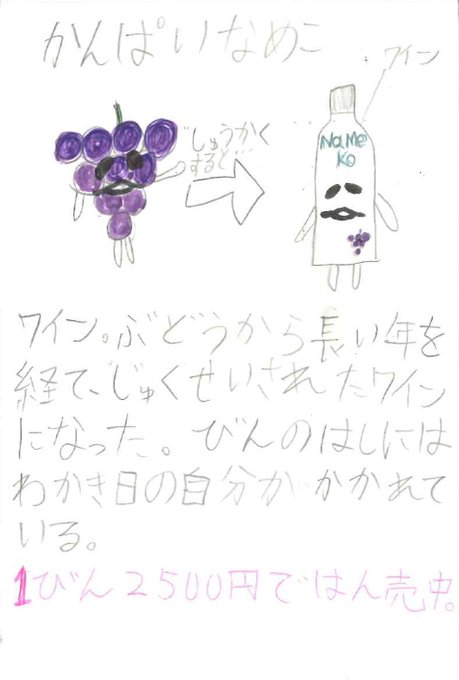 かんぱいなめこ
ワイン
しゅうかく
すると
NaMe
Ko
ワイン。ぶどうから長い年を
経て、じゅくせいされたワイン
になった。びんのはしには
わかき日の自分がかかれて
いる。
1びん2500円ではん売中。